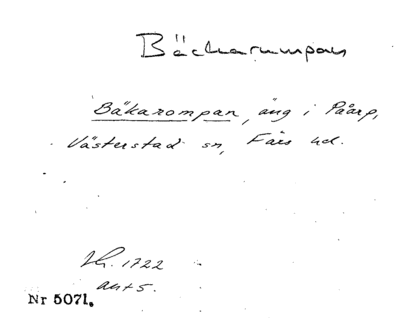 Bäckarumpan
Bäkarompan, äng i Påarp,
Västerstad sn, Färs hd.
1722
ant 5.
Nr 5071.